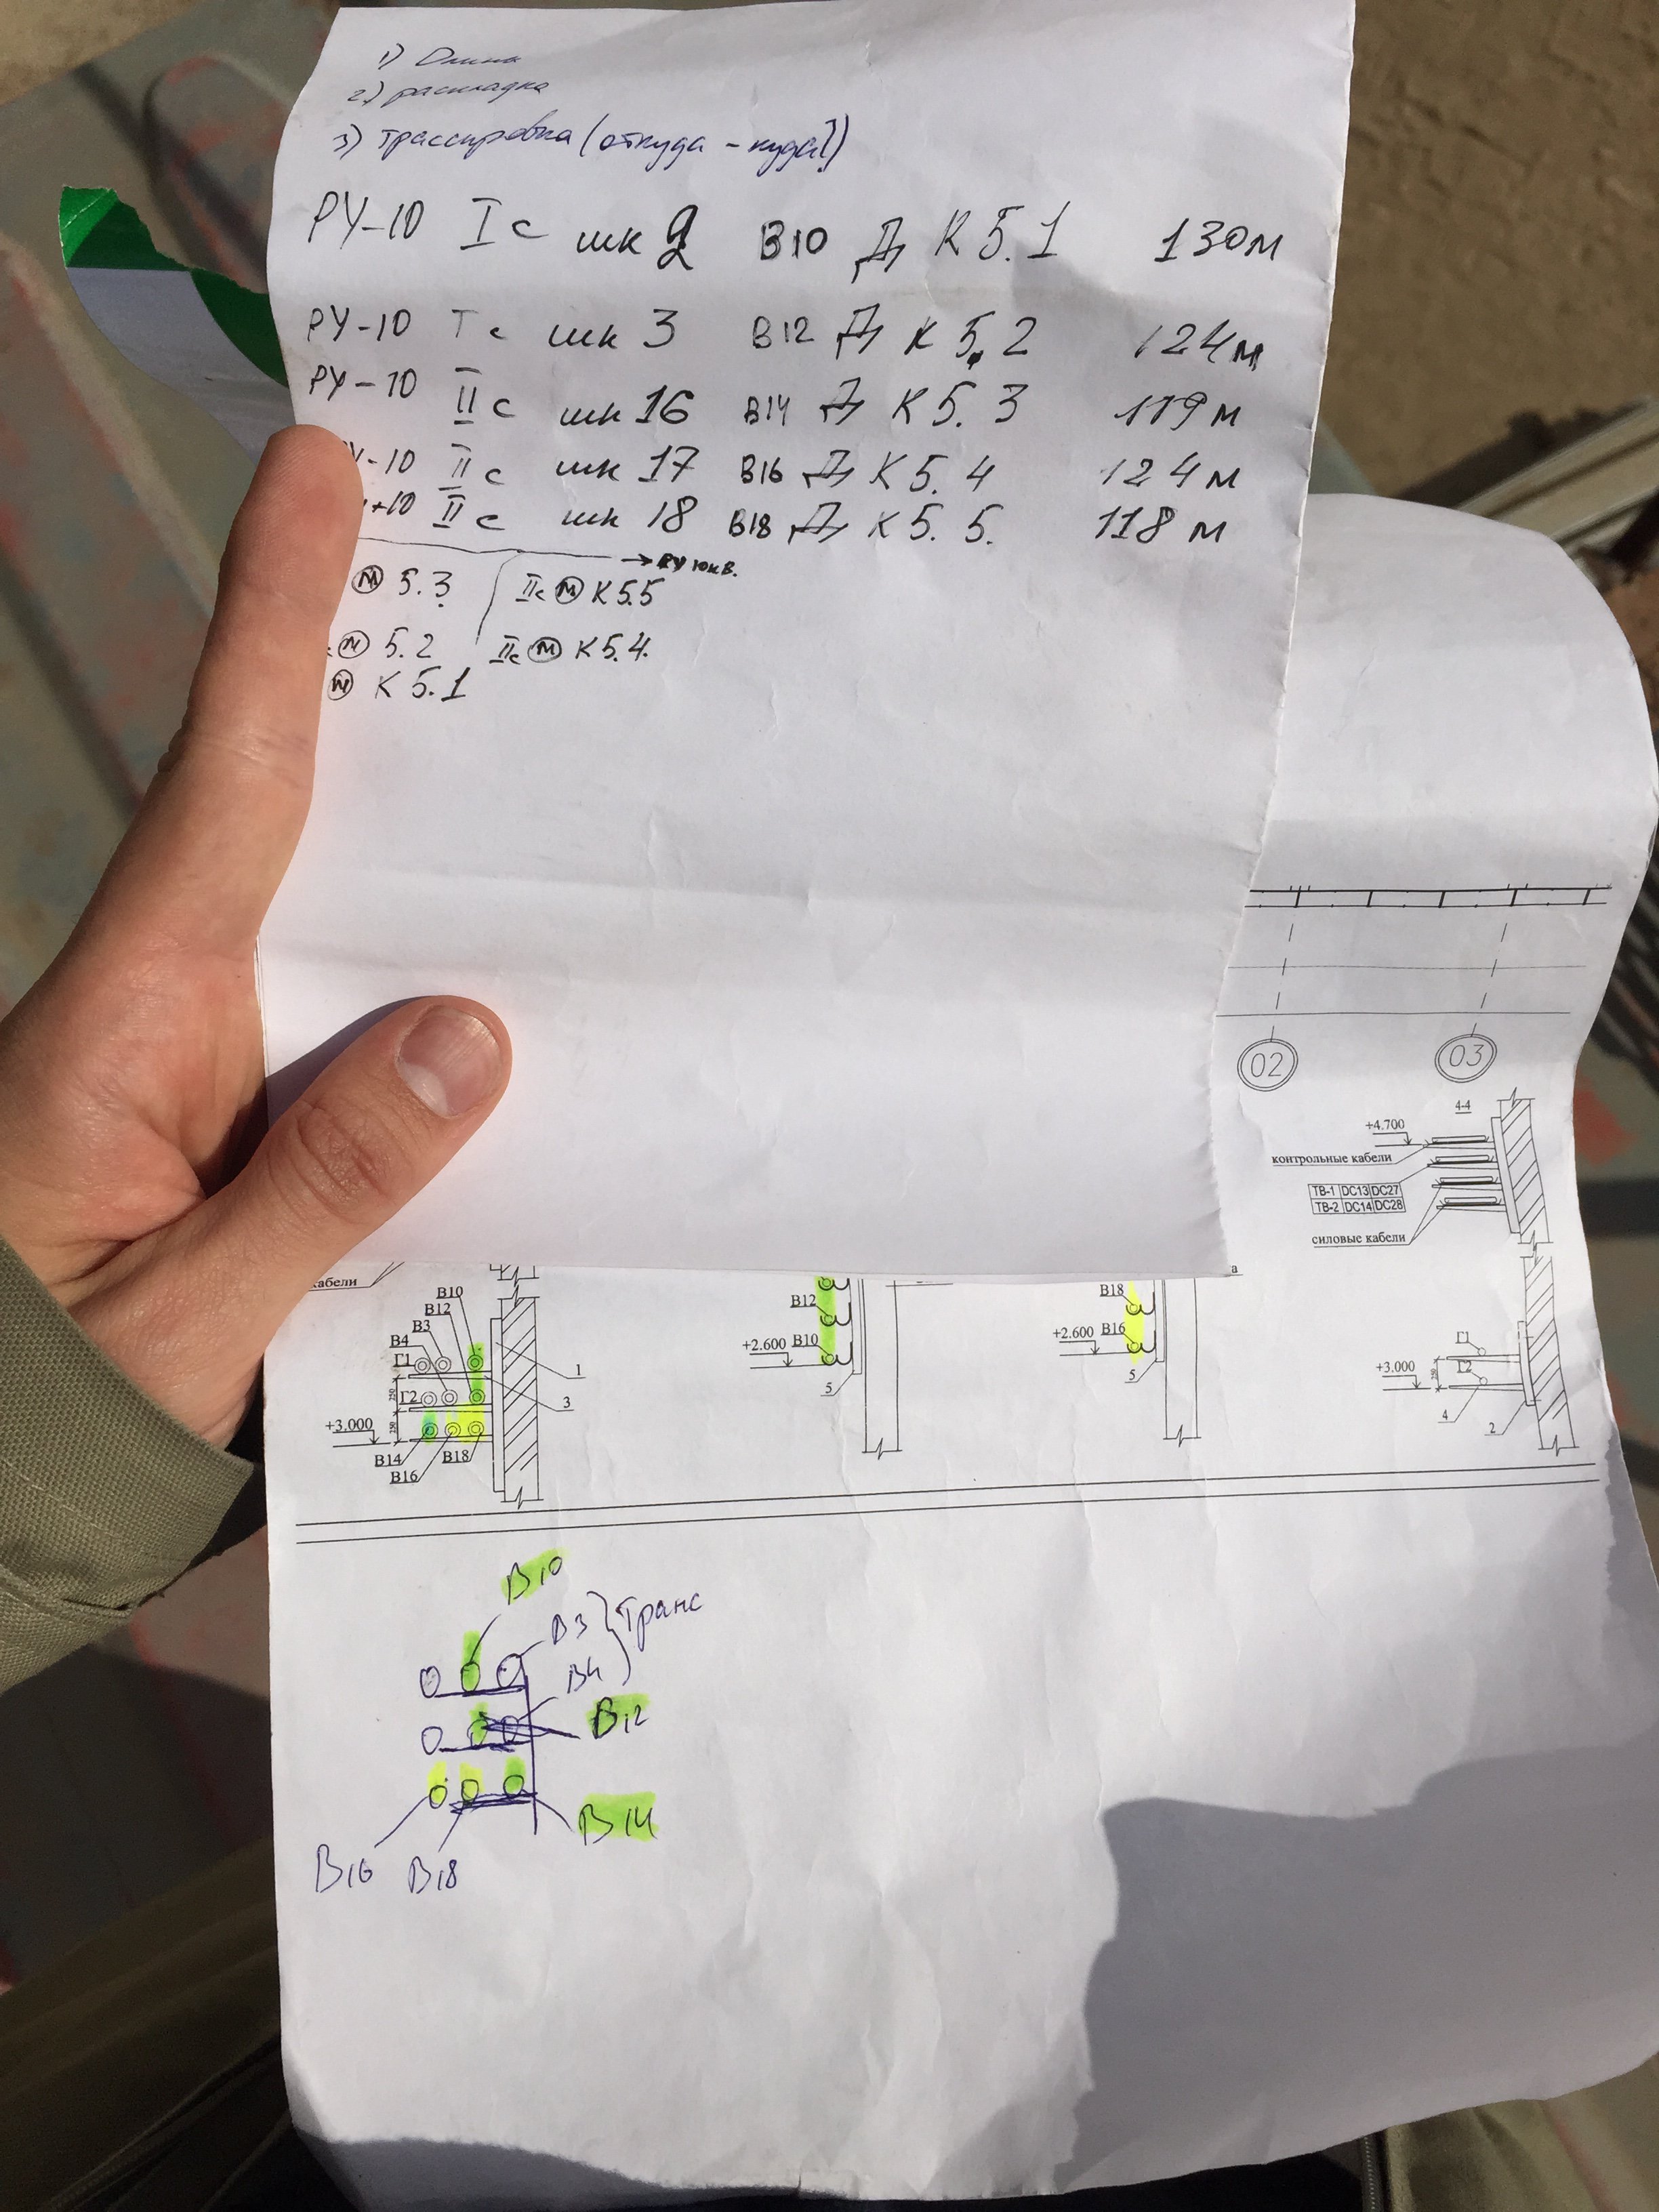 1) Длина
2) раскладка
3) трассировка (откуда - куда?)
РУ-10 Iс шк 2 В10 Д К 5.1 130м
РУ-10 Iс шк 3 В12 Д К 5.2 124м
РУ-10 IIс шк 16 В14 Д К 5.3 119м
У-10 IIс шк 17 В16 Д К 5.4 124м
10 IIс шк 18 В18 Д К 5.5. 118м
→ РУ 10кВ.
М 5.3 IIс М К 5.5
М 5.2 IIс М К 5.4.
М К 5.1
02 03
4-4
+4.700
контрольные кабели
ТВ-1 DC13 DC27
ТВ-2 DC14 DC28
силовые кабели
абели
В10
В12
В3
В4
Г1
Г2
250
250
+3.000
В14
В16
В18
1
3
В12
+2.600 В10
5
а
В18
+2.600 В16
5
Г1
Г2
+3.000
250
4
2
В10
В3 } Транс
В4
В12
В14
В16 В18